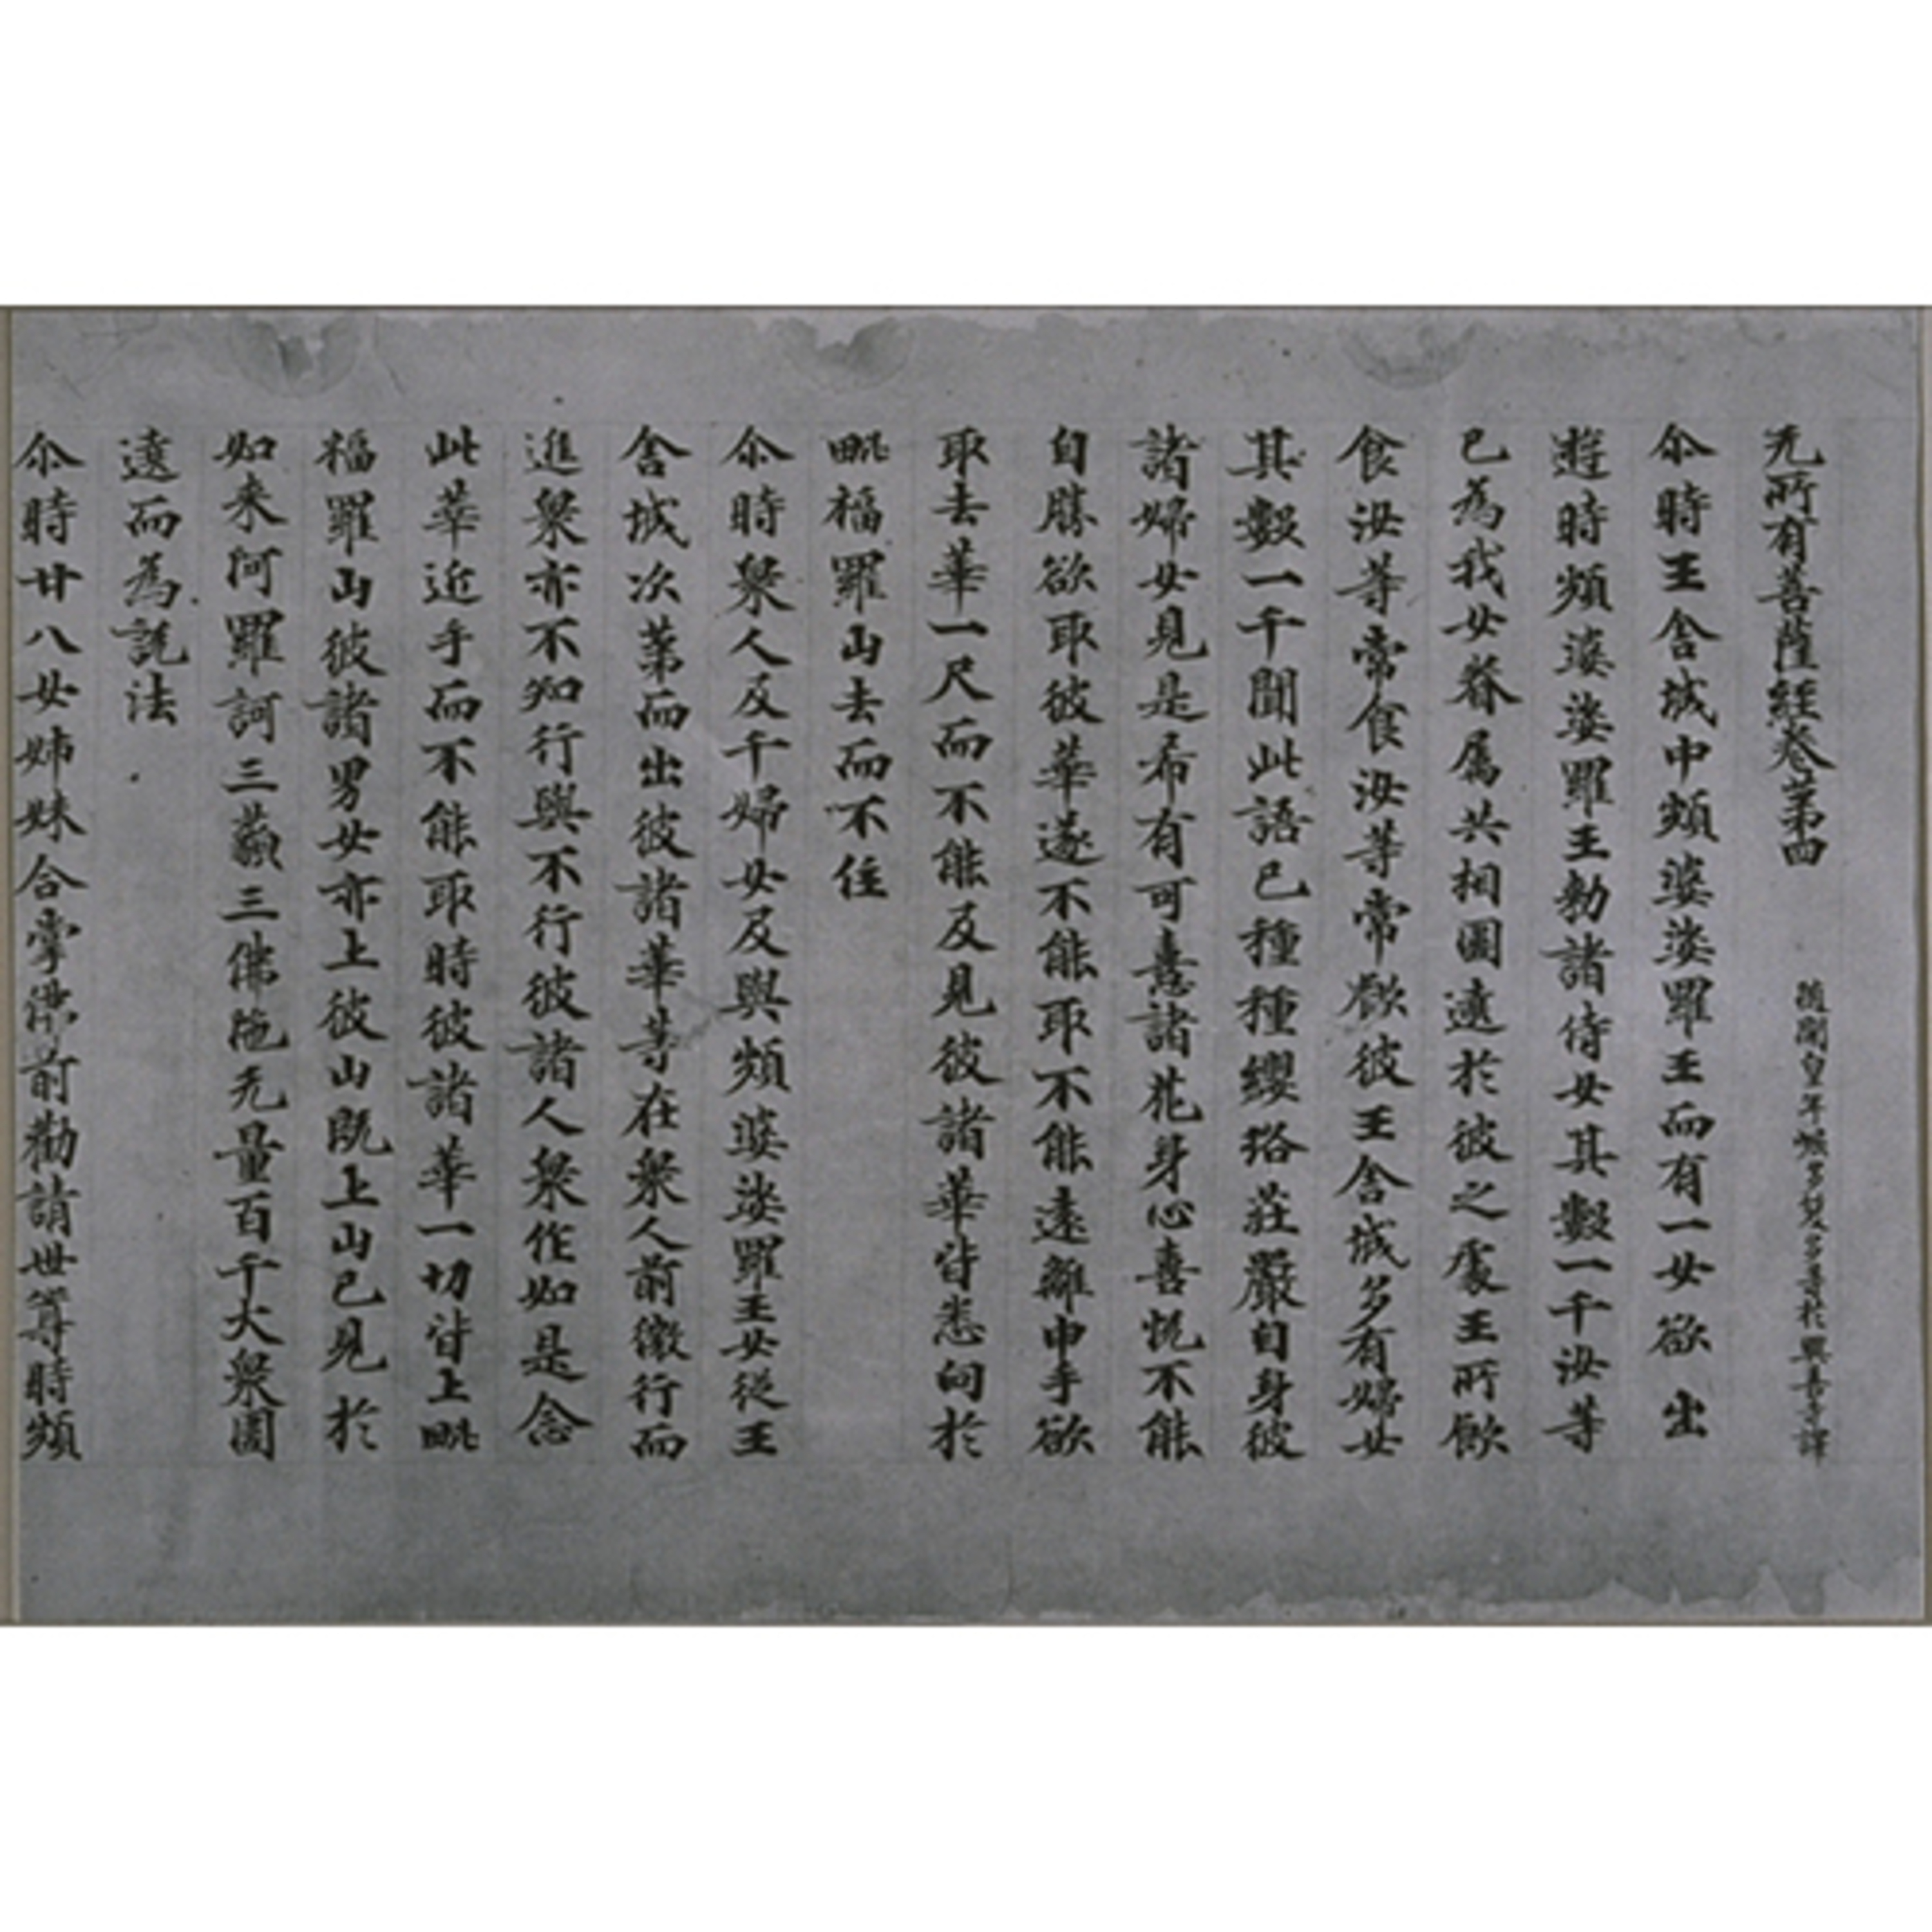 无所有菩薩経巻第四 隨開皇年崛多笈多等於興善寺譯
尒時王舎城中頻婆娑羅王而有一女欲出
遊時頻婆娑羅王勅諸侍女其數一千汝等
已為我女眷属共相圍遶於彼之處王所飲
食汝等常食汝等常飲彼王舎城多有婦女
其數一千聞此語已種種纓珞莊嚴自身彼
諸婦女見是希有可憙諸花身心喜恱不能
自勝欲取彼華遂不能取不能遠離申手欲
取去華一尺而不能及見彼諸華皆悉向於
毗福羅山去而不住
尒時衆人及千婦女及與頻婆娑羅王女従王
舎城次第而出彼諸華等在衆人前徐行而
進衆亦不知行與不行彼諸人衆作如是念
此華近手而不能取時彼諸華一切皆上毗
福羅山彼諸男女亦上彼山既上山已見於
如来阿羅訶三藐三佛陁无量百千大衆圍
遶而為説法
尒時廿八女姉妹合掌佛前勸請世尊時頻